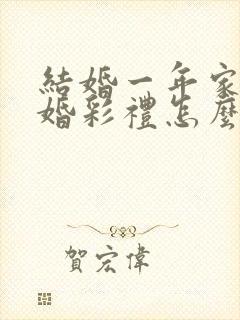 結婚一年家
婚彩禮怎麼
賀宏偉